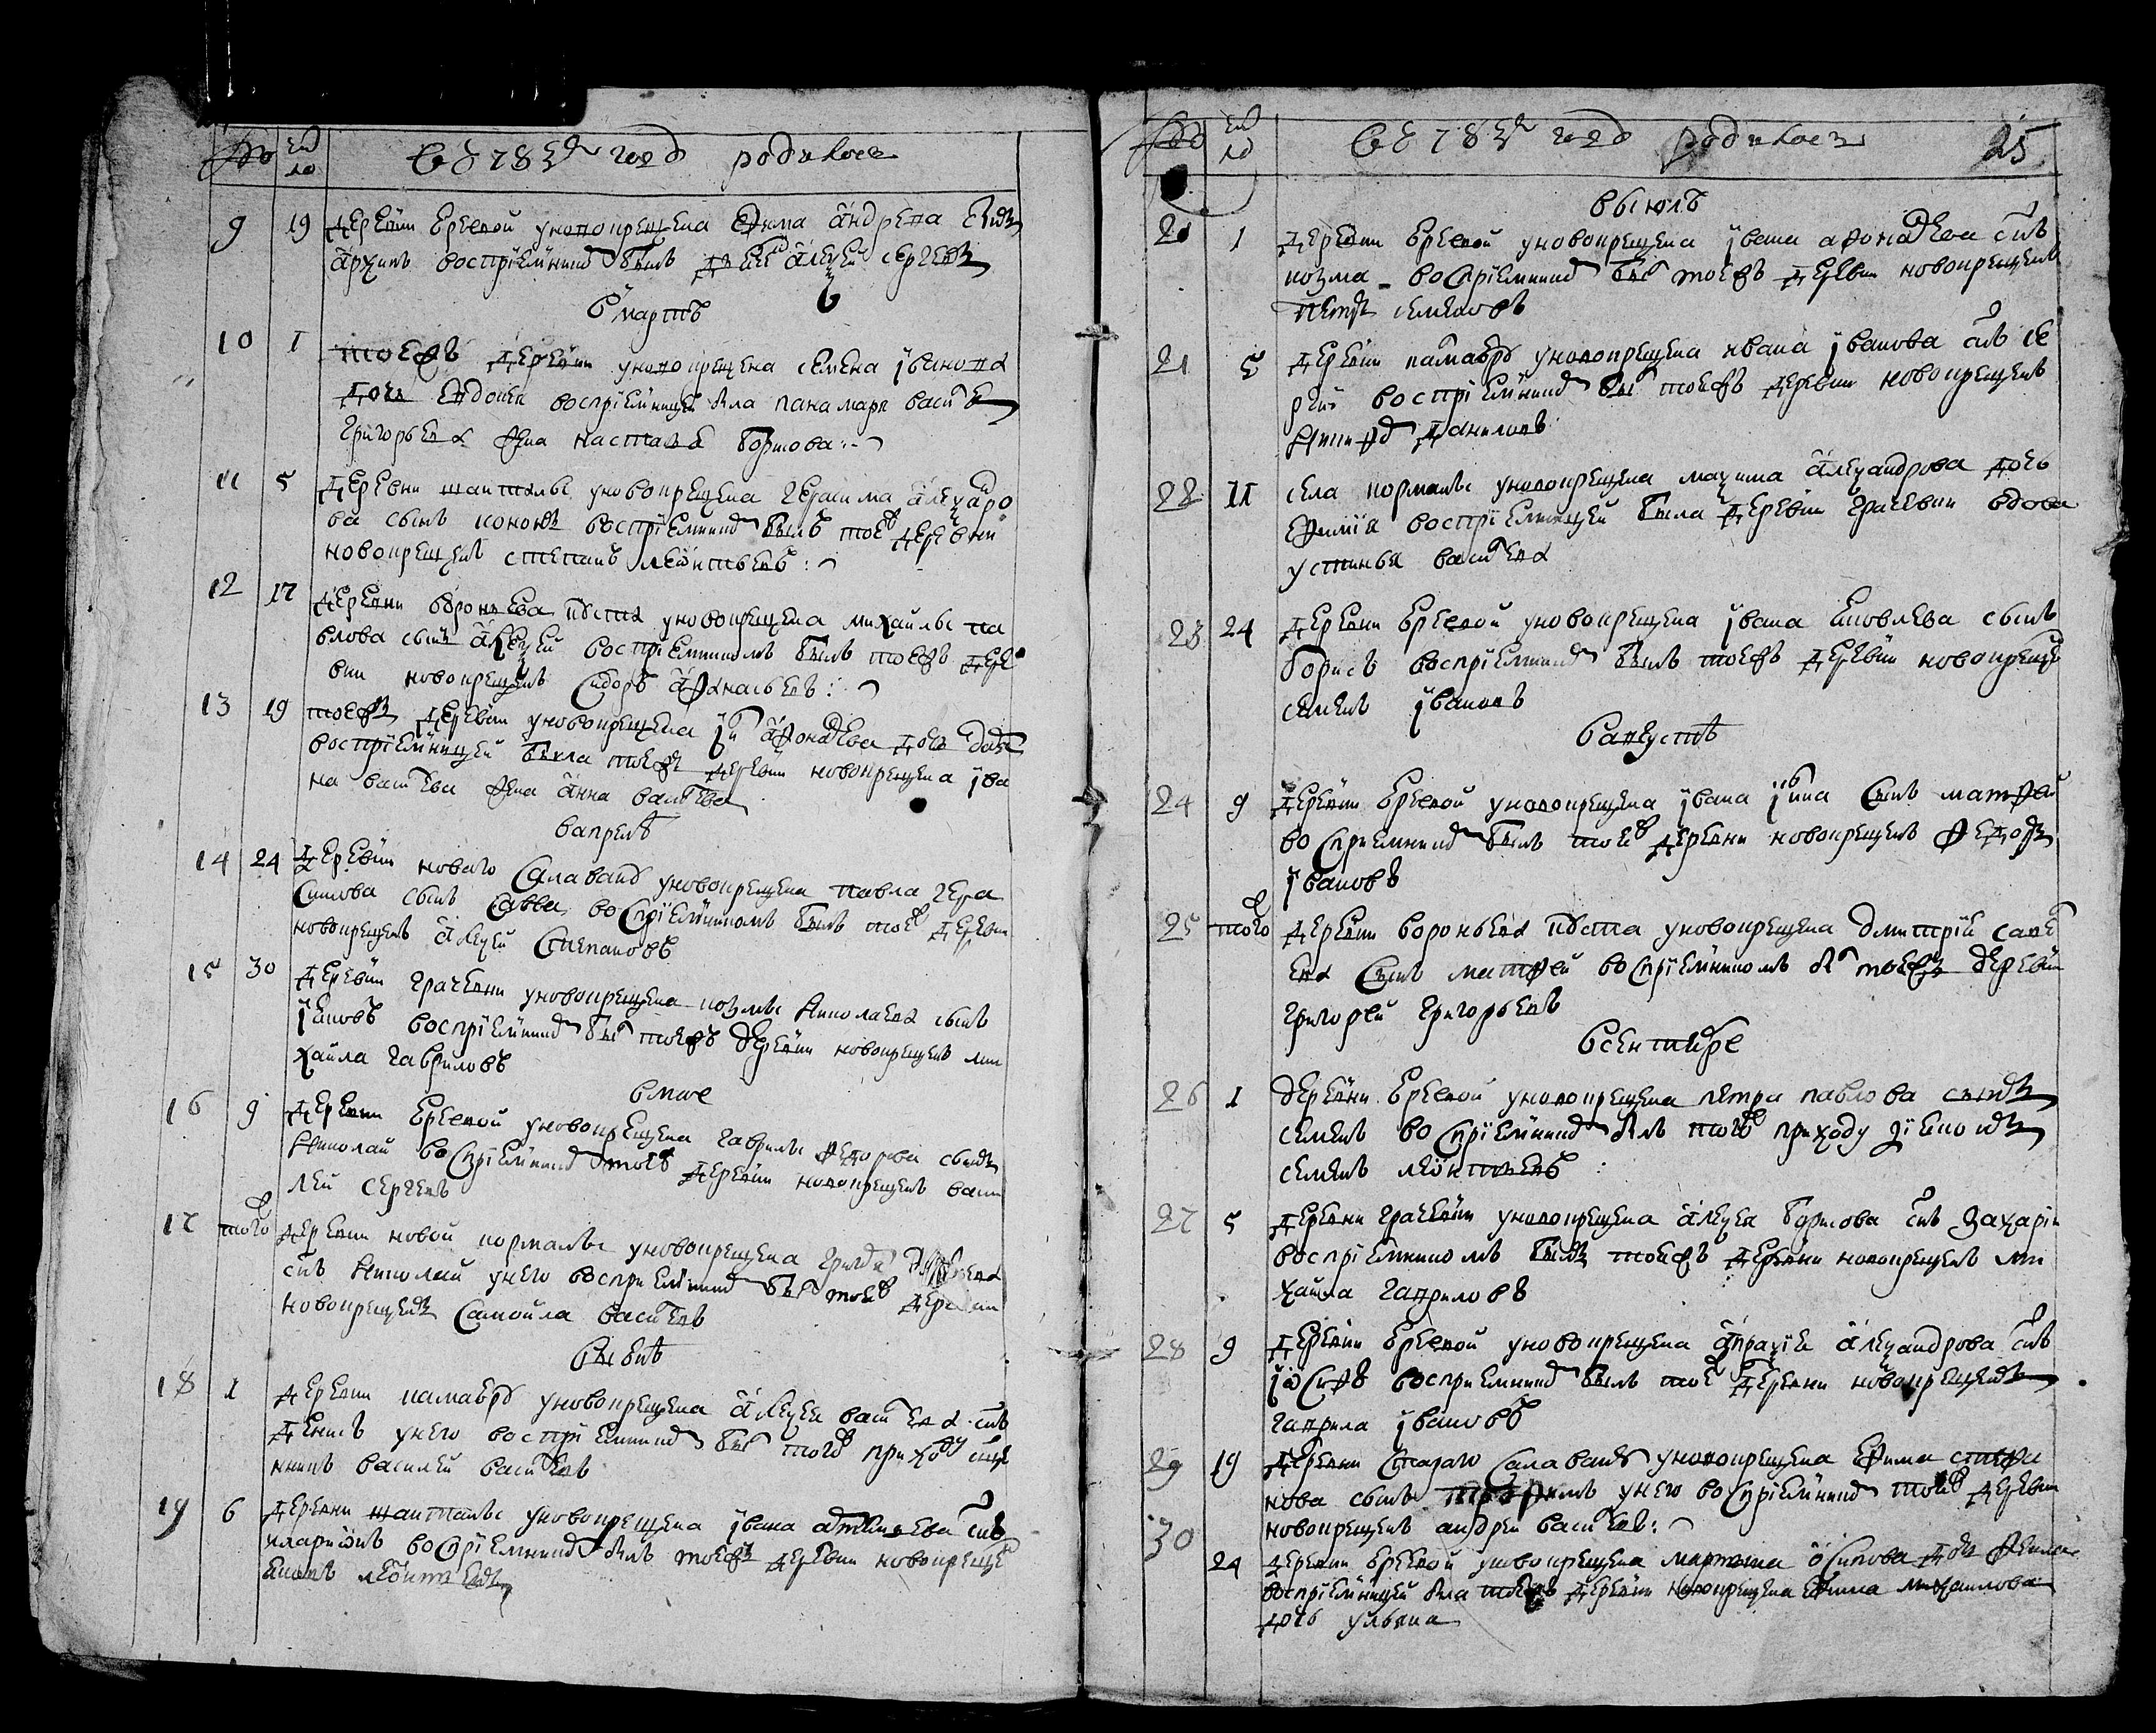 году родилось
9 19 деревни ерыевой у новокрещена ефима андреева сынъ
архипъ восприемникъ былъ алеѯей сергеевъ
в мартѣ
10 1 тоежъ деревни у новокрещена семена иванова
дочь евдокея восприемницей была понамаря василья
григорьева жена настасья борисова
11 5 деревни шаптальи у новокрещена герасима алеѯандро
ва сынъ кононъ восприемникъ былъ тоежъ деревни
новокрещенъ степанъ леонтьевъ
12 17 деревни вороньева куста у новокрещена михайлы па
влова сынъ алеѯей восприемникомъ былъ тоежъ дере
вни новокрещенъ сидоръ афанасьевъ
13 19 тоежъ деревни у новокрещена дочь
восприемницей была тоежъ деревни новокрещена ива
на васильева жена анна васильева
в апрелѣ
14 24 деревни новаго салавана у новокрещена павла гера
симова сынъ савва восприемникомъ былъ тоежъ деревни
новокрещенъ алеѯей степановъ
15 30 деревни грачевни у новокрещена козмы николаева сынъ
яковъ восприемникъ былъ тоежъ деревни новокрещенъ ми
хайла гавриловъ
в мае
16 9 деревни ерыевой у новокрещена гаврилы федорова сынъ
николай восприемникъ тоежъ деревни новокрещенъ васи
лей сергеевъ
17 тогожъ деревни новой кормалы у новокрещена
сынъ николай у него восприемникъ былъ тоежъ деревни
новокрещенъ самойла васильевъ
в июнѣ
18 1 деревни камаеръ у новокрещена алеѯея васильева сынъ
денисъ у него восприемникъ былъ тогожъ приходу свяще
нникъ василей васильевъ
19 6 деревни шаптальы у новокрещена ивана сынъ
иларионъ восприемникъ былъ тоежъ деревни новокрещенъ
яковъ леонтьевъ
году родилось 25
в июлѣ
20 1 деревни ерыевой у новокрещена ивана афонасьева сынъ
козма восприемникъ былъ тоежъ деревни новокрещенъ
петръ семеновъ
21 5 деревни камаеръ у новокрещена ивана иванова сынъ се
ргий восприемникъ былъ тоежъ деревни новокрещенъ
даниловъ
22 11 села кормалы у новокрещена маѯима алеѯандрова дочь
ефимия восприемницей была деревни грачевни вдова
устинья васильева
23 24 деревни ерыевой у новокрещена ивана яковлева сынъ
борисъ восприемникъ былъ тоежъ деревни новокрещенъ
семенъ ивановъ
в августѣ
24 9 деревни ерыевой у новокрещена ивана сынъ матфей
восприемникъ былъ тоежъ деревни новокрещенъ федоръ
ивановъ
25 тогожъ деревни вороньева куста у новокрещена дмитрий саве
ева сынъ матфей восприемникомъ былъ тоежъ деревни
григорей григорьевъ
в сентябре
26 1 деревни ерыевой у новокрещена петра павлова сынъ
семенъ восприемникъ былъ тогожъ приходу дияконъ
семенъ леонтьевъ
27 5 деревни грачевни у новокрещена алеѯея борисова сынъ захарiй
восприемникомъ былъ тоежъ деревни новокрещенъ ми
хайла гавриловъ
28 9 деревни ерыевой у новокрещена алеѯандрова сынъ
иосифъ восприемникъ былъ тоежъ деревни новокрещенъ
гаврила ивановъ
29 19 деревни стараго салавана у новокрещена ефима стефа
нова сынъ трофимъ у него восприемникъ тоежъ деревни
новокрещенъ андрей васильевъ
30 24 деревни ерыевой у новокрещена осипова дочь фекла
восприемницей была тоежъ деревни новокрещена ефима михаилова
дочь ульяна